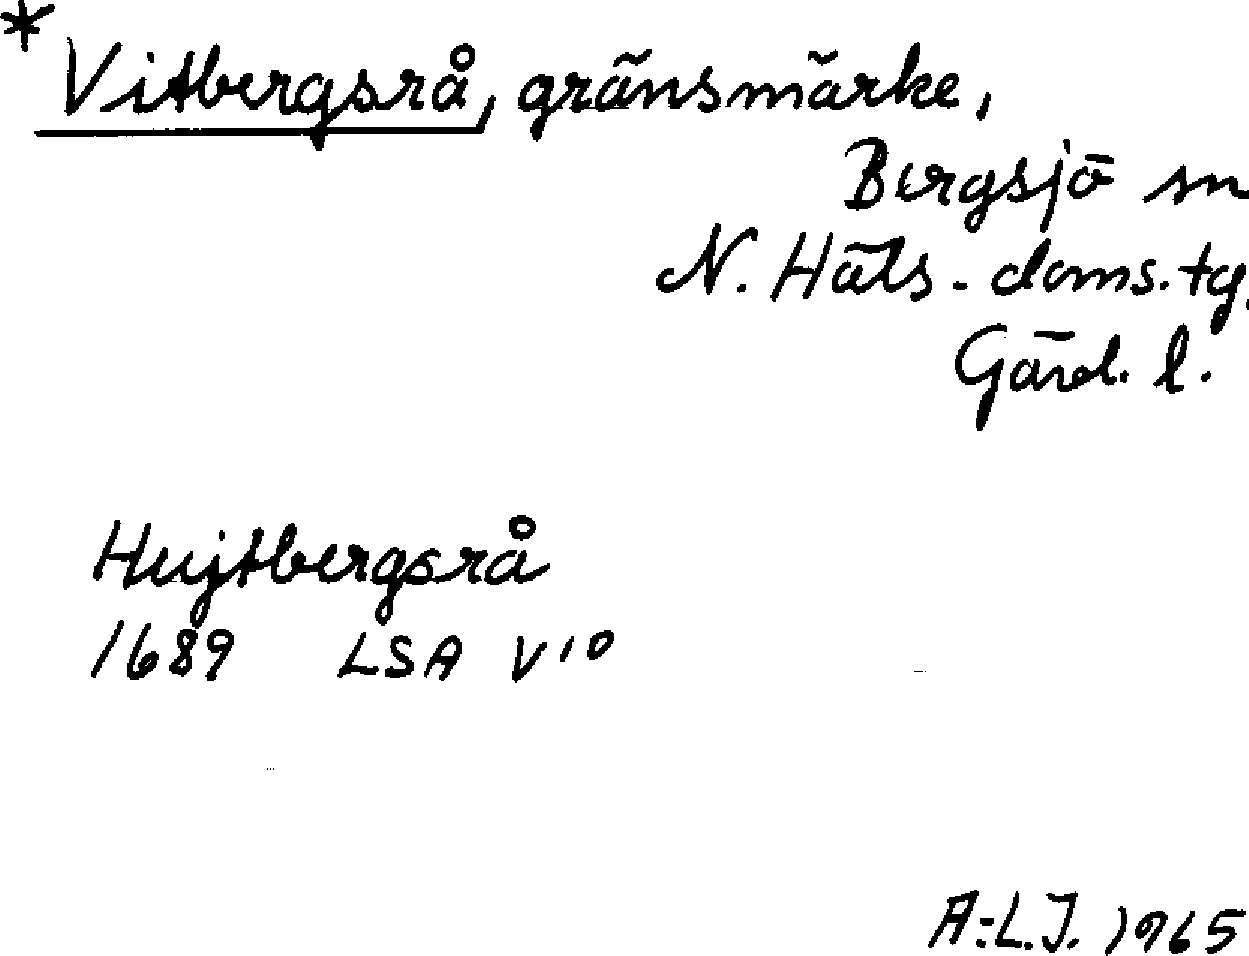 * Vitbergsrå, gränsmärke,
Bergsjö sn
N. Häls. doms. tg.
Gävl. l.
Hujtbergsrå
1689 LSA V10
A:L.J. 1965